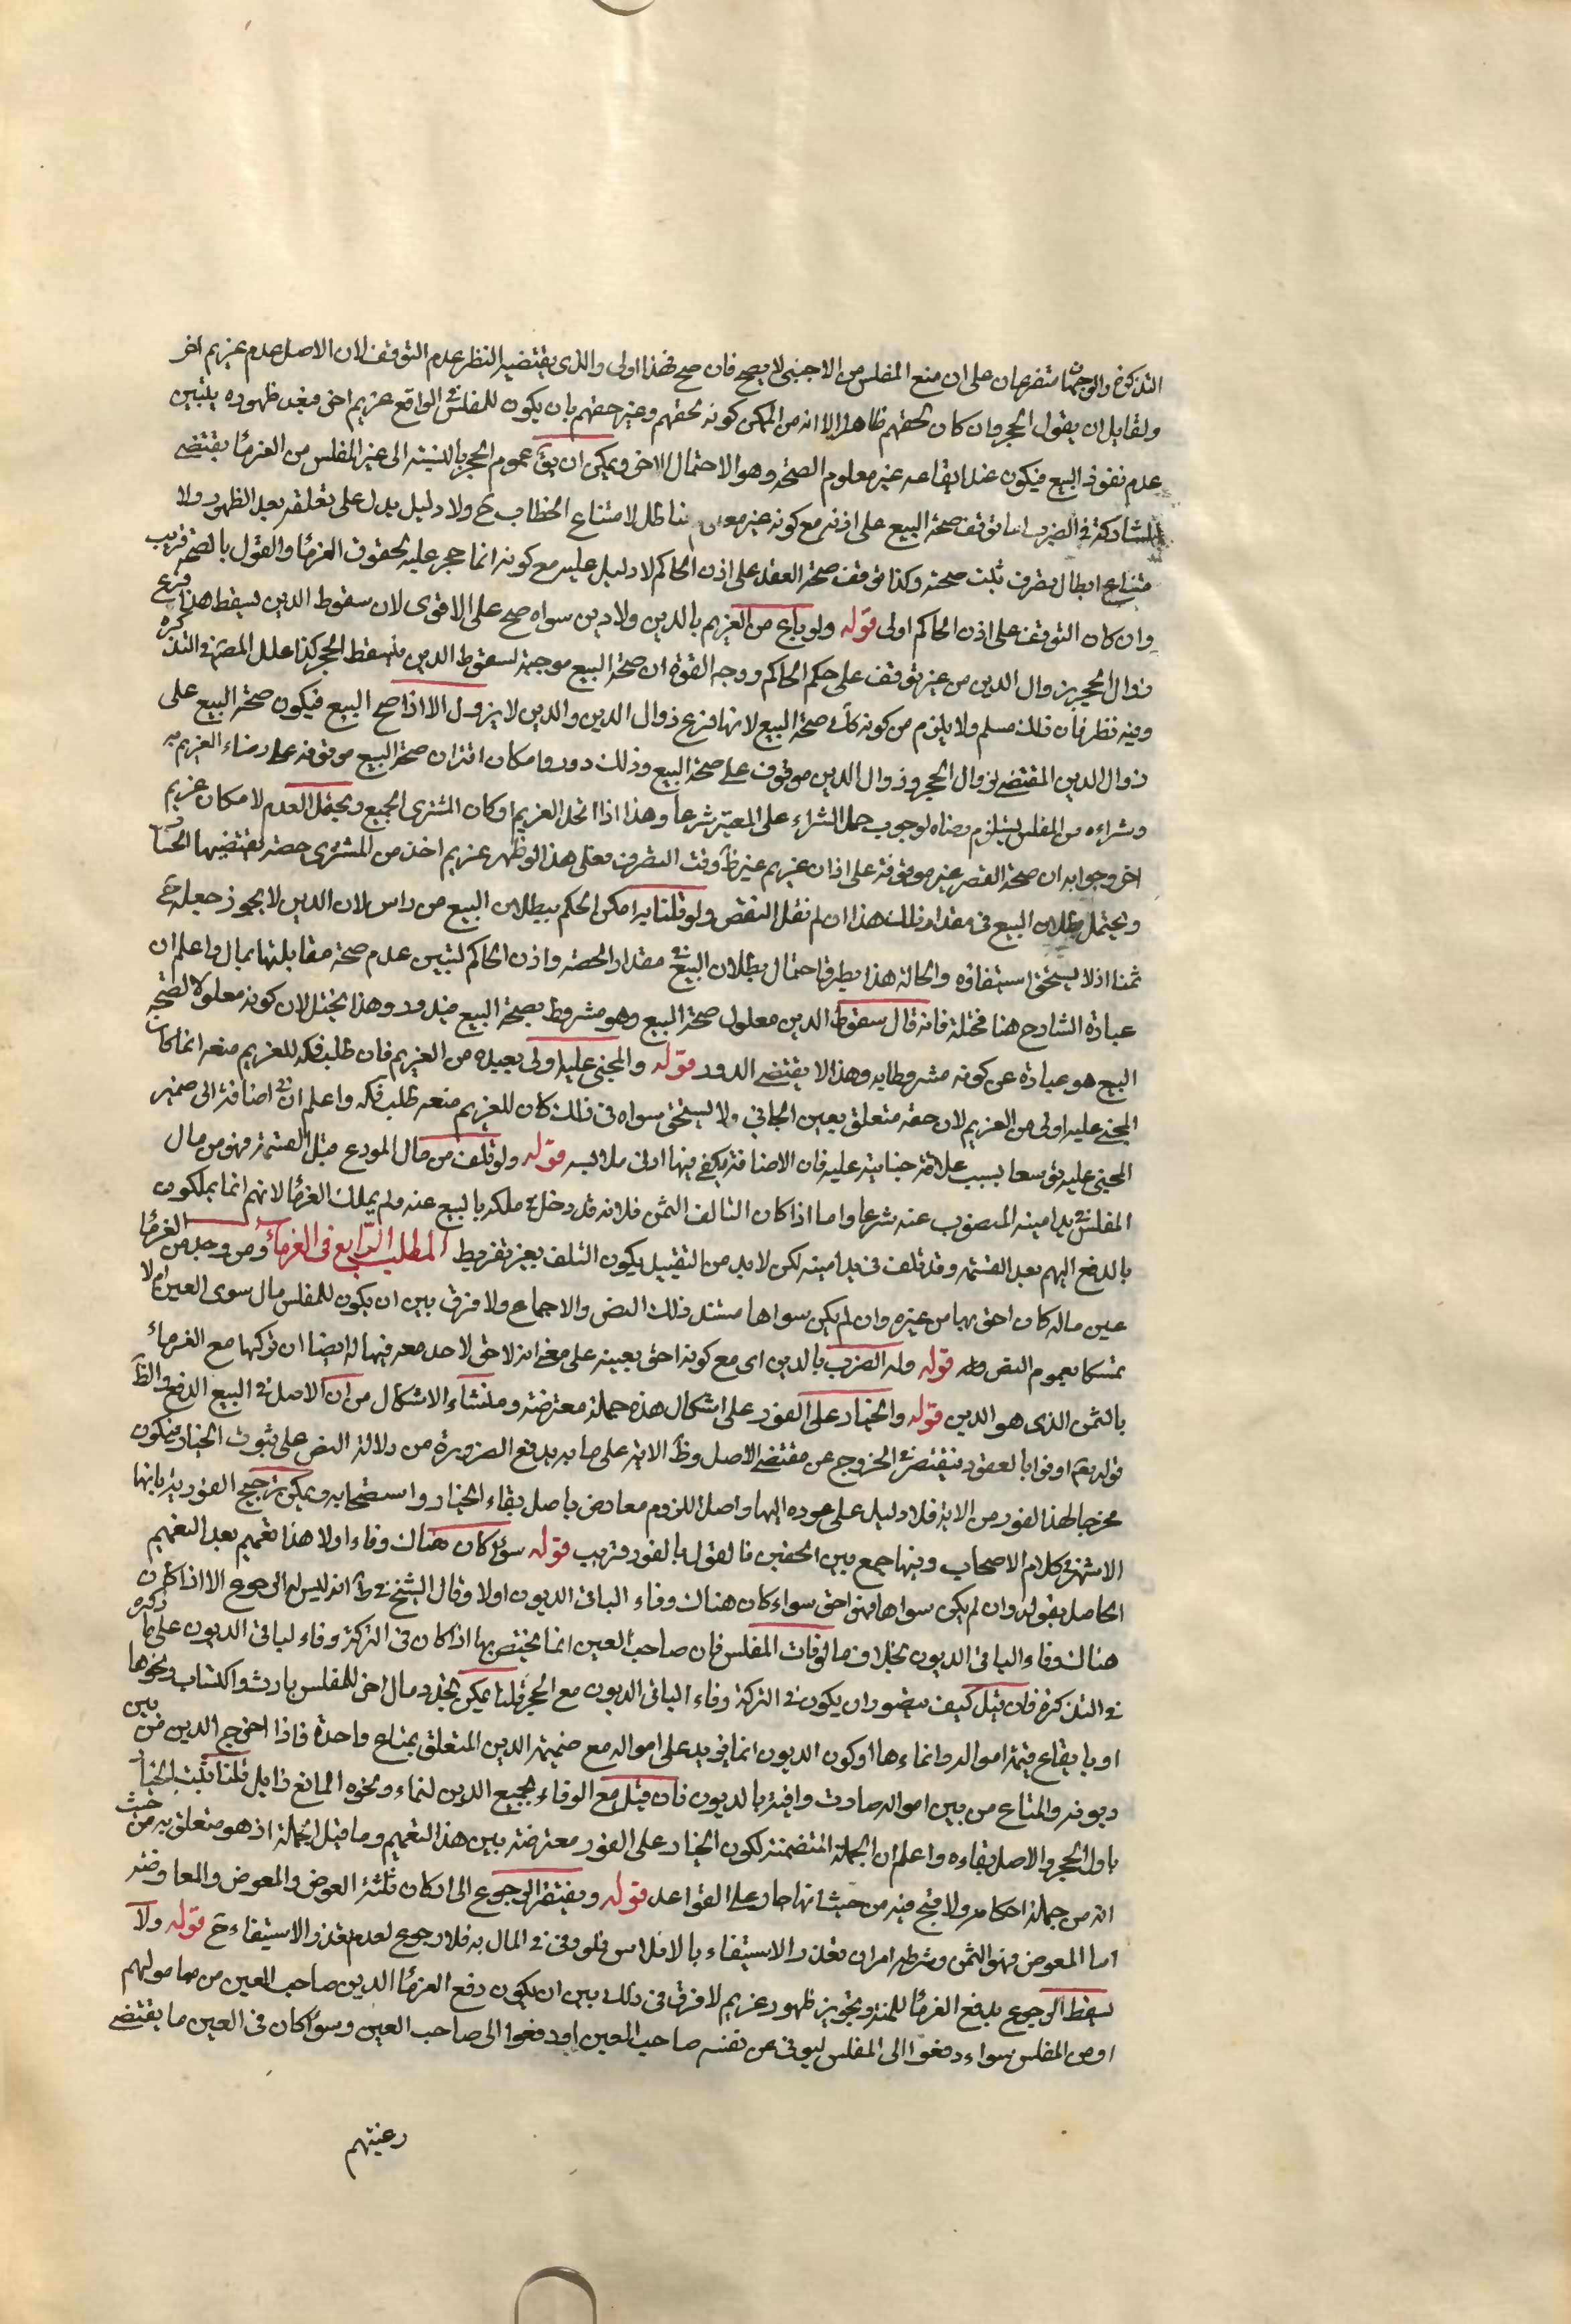 التذكرة والوجهان متفرعان على ان منع المفلس من الاجنبى لا يصح فان صح فهذا اولى والذى يقتضيه النظر عدم التوقف لان الاصل عدم غريم اخر
ولقايل ان يقول الحجر وان كان لحقهم ظاهرا الا انه من الممكن كونه لحقهم وغير حقهم بان يكون للمفلس فى الواقع غريم اخر فبعد ظهوره يتبين
عدم نفوذ البيع فيكون عند ايقاعه غير معلوم الصحة وهو الاحتمال الاخر ويمكن ان يق عموم الحجر بالنسبة الى غير المفلس من الغرماء يقتضى
المشاركة فى الضرب اما توقف صحة البيع على اذنه مع كونه غير معلوم لنا ظل لامتناع الخطاب ح ولا دليل يدل على تعلقه بعد الظهور ولا
متناع ابطال تصرف ثبت صحته وكذا توقف صحة العقد على اذن الحاكم لا دليل عليه مع كونه انما حجر عليه لحقوق الغرماء والقول بالصحة قريب
وان كان التوقف على اذن الحاكم اولى قوله ولو باع من الغريم بالدين ولا دين سواه صح على الاقوى لان سقوط الدين يسقط هذا فرع
زوال الحجر بزوال الدين من غير توقف على حكم الحاكم ووجه القوة ان صحة البيع موجبة لسقوط الدين فيسقط الحجر كذا علل المصنف فى التذكره
وفيه نظر فان ذلك مسلم ولا يلزم من كونه كك صحة البيع لانها فرع زوال الدين والدين لا يزول الا اذا صح البيع فيكون صحة البيع على
زوال الدين المقتضى لزوال الحجر وزوال الدين موقوف على صحة البيع وذلك دور وامكان اقتران صحة البيع موقوفة على رضاء الغريم به
وشراءه من المفلس يستلزم رضاه لوجوب حمل الشراء على المعتبر شرعا وهذا اذا اتحد الغريم او كان المشترى الجميع ويحتمل العدم لامكان غريم
اخر وجوابه ان صحة التصرف غير موقوفة على اذن غريم غير ظ وقت التصرف فعلى هذا لو ظهر غريم اخذ من المشترى حصة يقتضيها الحساب
ويحتمل بطلان البيع فى مقدار ذلك هذا ان لم نقل النقض ولو قلنا به امكن الحكم ببطلان البيع من راس لان الدين لا يجوز جعله ح
ثمنا اذ لا يستحق استيفاؤه والحالة هذا يطرق احتمال بطلان البيع فى مقدار الحصة واذن الحاكم لتبين عدم صحة مقابلتها بمال واعلم ان
عبارة الشارح هنا مختلة فانه قال سقوط الدين معلول صحة البيع وهو مشروط بصحة البيع فيدور وهذا يختل لان كونه معلولا لصحة
البيع هو عبارة عن كونه مشروطا به وهذا لا يقتضى الدور قوله والمجنى عليه اولى بعبده من الغريم فان طلب فكه للغريم منعه انما كان
المجنى عليه اولى من الغريم لان حقه متعلق بعين الجانى ولا يستحق سواه فى ذلك كان للغريم منعه طلب فكه واعلم ان فى اضافة الى ضمير
المجنى عليه توسعا بسبب علاقة جنايته عليه فان الاضافة يكفى فيها ادنى ملابسه قوله ولو تلف من مال المودع قبل القسمة فهو من مال
المفلس فى يد امينه المنصوب عنه شرعا واما اذا كان التالف الثمن فلانه قد دخل فى ملكه بالبيع عنه ولم يملك الغرماء لانهم انما يملكون
بالدفع اليهم بعد القسمة وقد تلف فى يد امينه لكن لا بد من التقييد بكون التلف بغير تفريط المطلب الرابع فى الغرماء ومن وجد من الغرماء
عين ماله كان احق بها من غيره وان لم يكن سواها مستند ذلك النص والاجماع ولا فرق بين ان يكون للمفلس مال سوى العين ام لا
تمسكا بعموم النص قوله وله الضرب بالدين اى مع كونه احق بعينه على معنى انه لا حق لاحد معه فيها له ايضا ان يتركها مع الغرماء
بالثمن الذى هو الدين قوله والخيار على الفور على اشكال هذه جملة معترضة ومنشاء الاشكال من ان الاصل فى البيع الدفع والظ
قوله تع اوفوا بالعقود فيقتصر فى الخروج عن مقتضى الاصل وظ الاية على ما به يدفع الضرورة من دلالة النص على ثبوت الخيار فيكون
مخرجا لهذا الفور من الاية فلا دليل على عوده اليها واصل اللزوم معارض باصل بقاء الخيار واستصحابه ويمكن ترجيح الفورية بانها
الاشهر فى كلام الاصحاب وفيها جمع بين الحقين فالقول بالفور قريب قوله سواء كان هناك وفاء اولا هذا تعميم بعد التعميم
الحاصل بقوله وان لم يكن سواها فهو احق سواء كان هناك وفاء الباقى الديون اولا وقال الشيخ فى ط انه ليس له الرجوع الا اذا كان
هناك وفاء الباقى الديون بخلاف ما لو فات المفلس فان صاحب العين انما يختص بها اذا كان فى التركة وفاء لباقى الديون على ما ذكره
فى التذكرة فان قيل كيف يتصور ان يكون فى التركة وفاء الباقى الديون مع الحجر قلنا يمكن تجدد مال اخر للمفلس بارث واكتساب ونحوها
او بارتفاع قيمة امواله وانماءها او كون الديون انما يزيد على امواله مع ضميمة الدين المتعلق بمتاع واحدة فاذا اخرج الدين من بين
ديونه والمتاع من بين امواله صارت وافية بالديون فان قيل مع الوفاء بجميع الدين لنماء ونحوه المانع زايل قلنا ثبت الخيار
باول الحجر والاصل بقاءه واعلم ان الجملة المتضمنة لكون الخيار على الفور معترضة بين هذا التعميم وما قبل الجملة اذ هو متعلق به من حيث
انه من جملة احكامه ولا قبح فيه من حيث انها جار على القواعد قوله ويفتقر الرجوع الى اركان ثلثة العوض والمعوض والمعاوضه
اما المعوض فهو الثمن وشرطه امران تعذر الاستيفاء بالافلاس فلو وفى فى المال به فلا رجوع لعدم تعذر الاستيفاء ح قوله ولا
يسقط الرجوع بدفع الغرماء للمنة وتجويز ظهور غريم لا فرق فى ذلك بين ان يكون دفع الغرماء الدين صاحب العين من مالهم
او من المفلس سواء دفعوا الى المفلس ليوفى عن نفسه صاحب العين او دفعوا الى صاحب العين وسواء كان فى العين ما يقتضى
رغبتهم